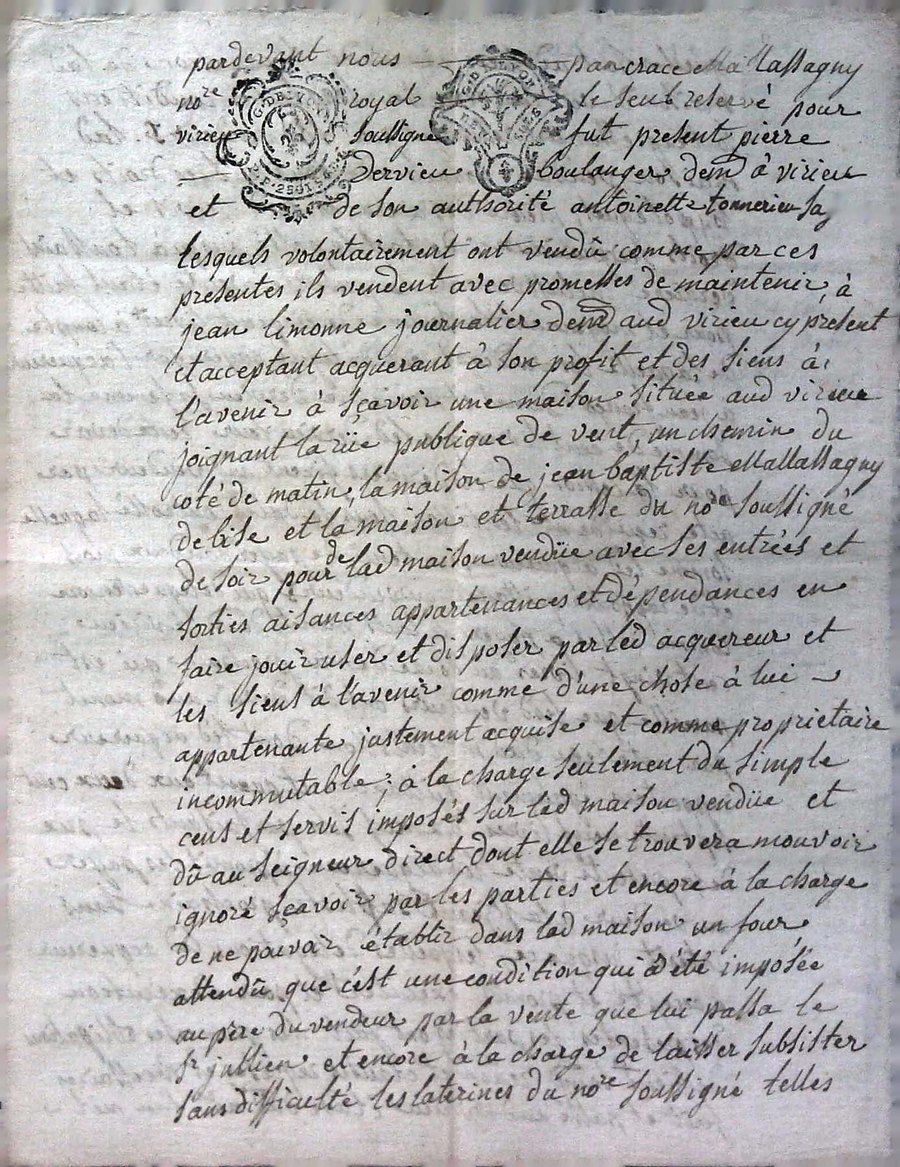 pardevant nous pancrace Mallassagny
nore royal le seul reservé pour
virieu soussigné fut present pierre
Dervieu boulanger demt à virieu
et de son authorité antoinette tonnerieu sa
lesquels volontairement ont vendû comme par ces
presentes ils vendent avec promesses de maintenir, à
jean limonne journalier demt aud virieu cy present
et acceptant acquerant à son profit et des siens à
l'avenir à sçavoir une maison située aud virieu
joignant la rüe publique de vent, un chemin du
coté de matin, la maison de jean baptiste Mallassagny
de bise et la maison et terrasse du nore soussigné
de soir pour de lad maison vendüe avec ses entrées et
sorties aisances appartenances et dépendances en
faire jouir user et disposer par led acquereur et
les siens à l'avenir comme d'une chose à lui
appartenante justement acquise et comme proprietaire
incommutable; à la charge seulement du simple
cens et servis imposés sur lad maison vendüe et
dû au seigneur direct dont elle se trouvera mouvoir
ignoré sçavoir par les parties et encore à la charge
de ne pouvoir établir dans lad maison un four
attendû que c'est une condition qui a été imposée
au père du vendeur par la vente que lui passa le
sr jullien et encore à la charge de laisser subsister
sans difficulté les laterines du nore soussigné telles